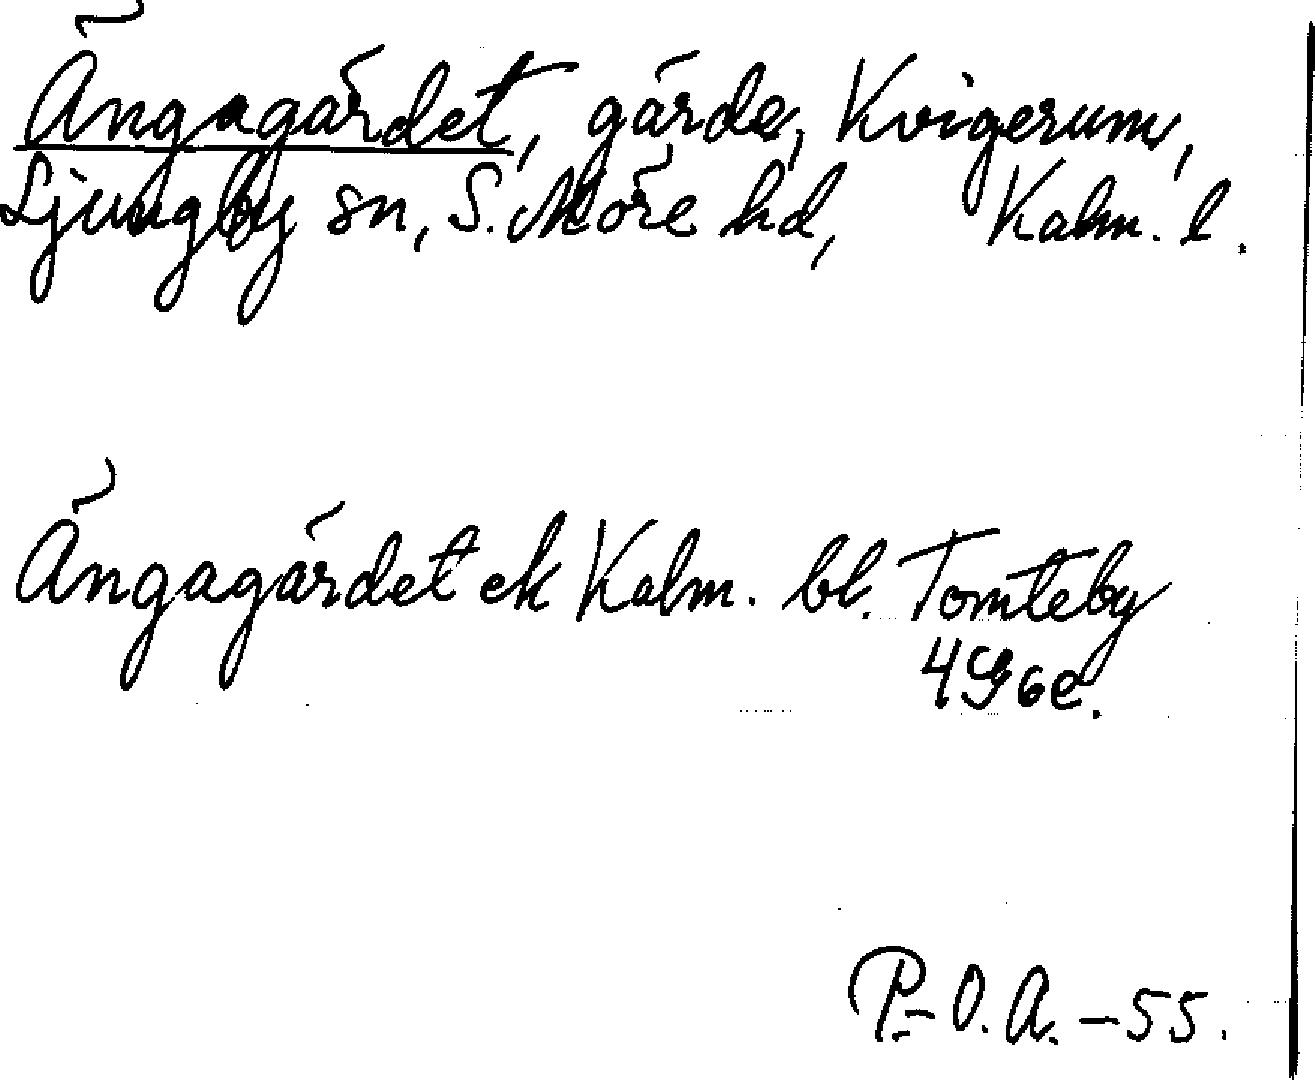 Ängagärdet, gärde, Kvigerum,
Ljungby sn, S. Möre hd, Kalm. l.
Ängagärdet ek Kalm. bl. Tomteby
4G6e.
P-O.A.-55.